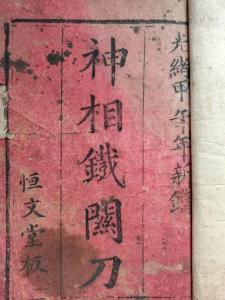 光緒甲午年新鐫
神相鐵關刀
恒文堂板